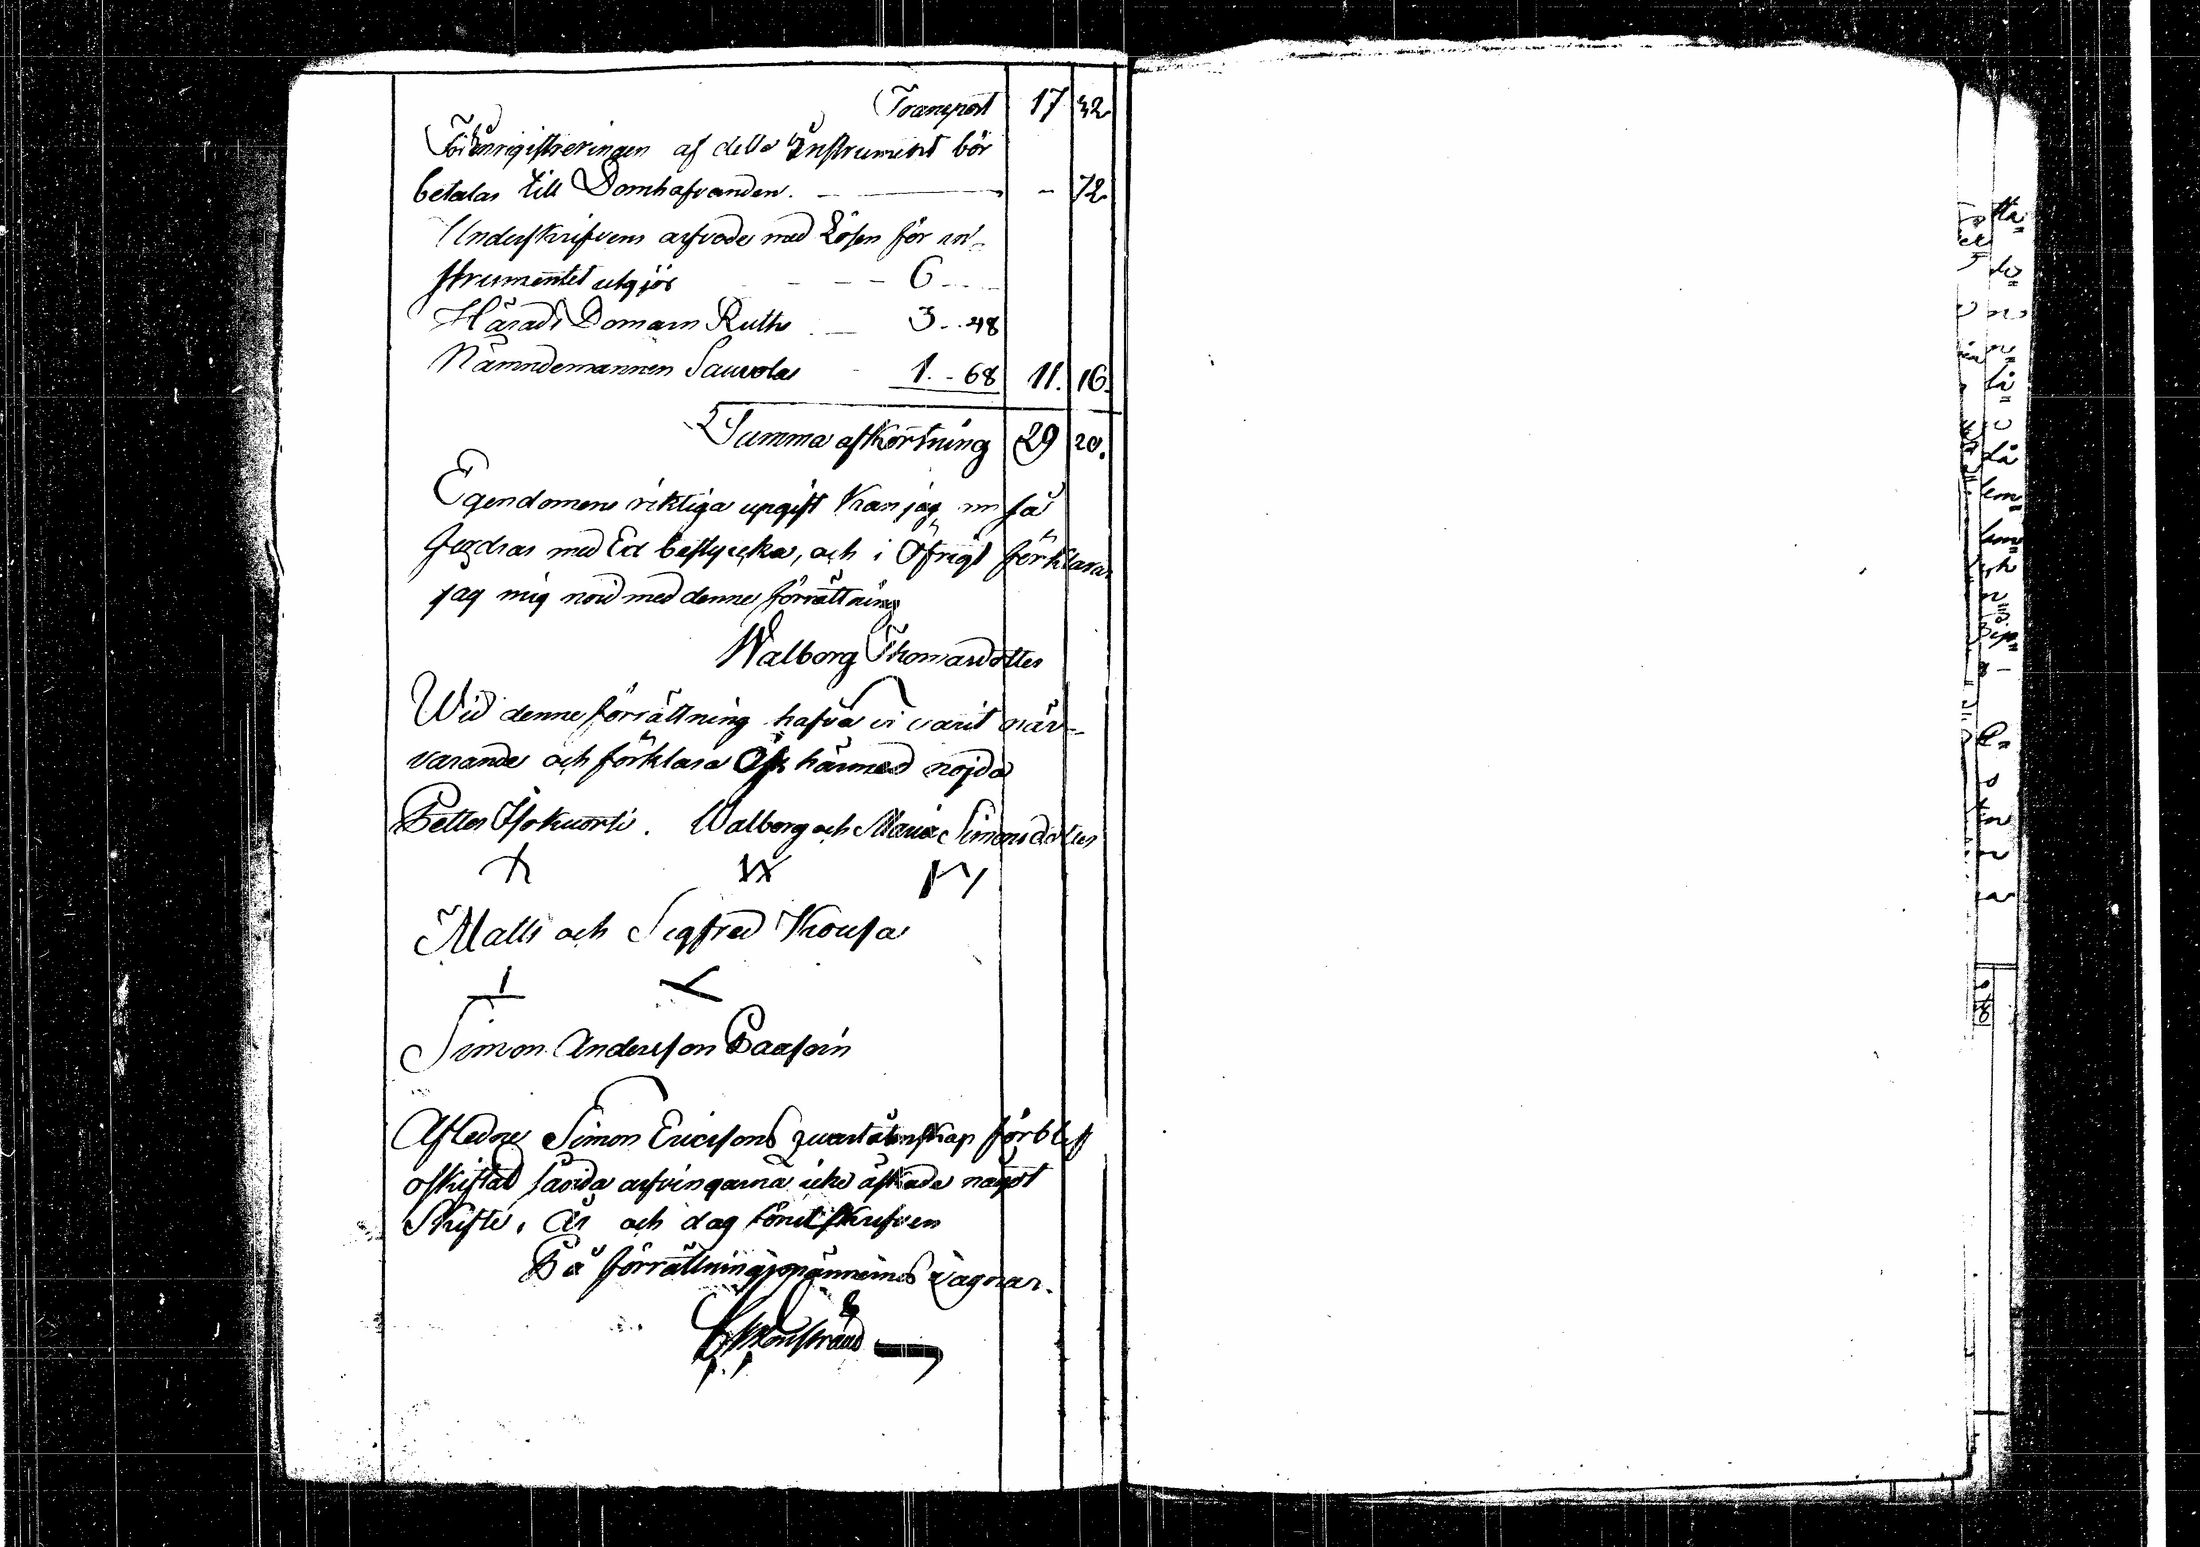 Transport 17 32
För inregistreringen af detta Instrument bör
betalas till Domhafvanden. — - 72
Underskrifvens arfvode med Lösen för in-
strumentet utgjör - - - 6 - -
Härads Domarn Ruthu — 3 - 48
Nämndemannen Sauvola - 1. - 68 11. 16.
Summa afkortning 29 20.
Egendomens riktiga upgift kan jag om så
fordras med Ed bestyrcka, och i Öfrigt förklarar
jag mig nöid med denne förrättning
Walborg Thomasdotter
Wid denne förrättning hafva vi varit när-
varande och förklara Oss härmed nöjda
Petter Walborg och Maria Simonsdotter
Matts och Sigfred Kousa
Simon Andersson Paasoin
Afledne Simon Ericssons qvarlåtenskap förblef
oskiftad savida arfvingarna icke äskade något
Skifte, År och dag förut skrifven
På förrättningsmännernes vägnar.